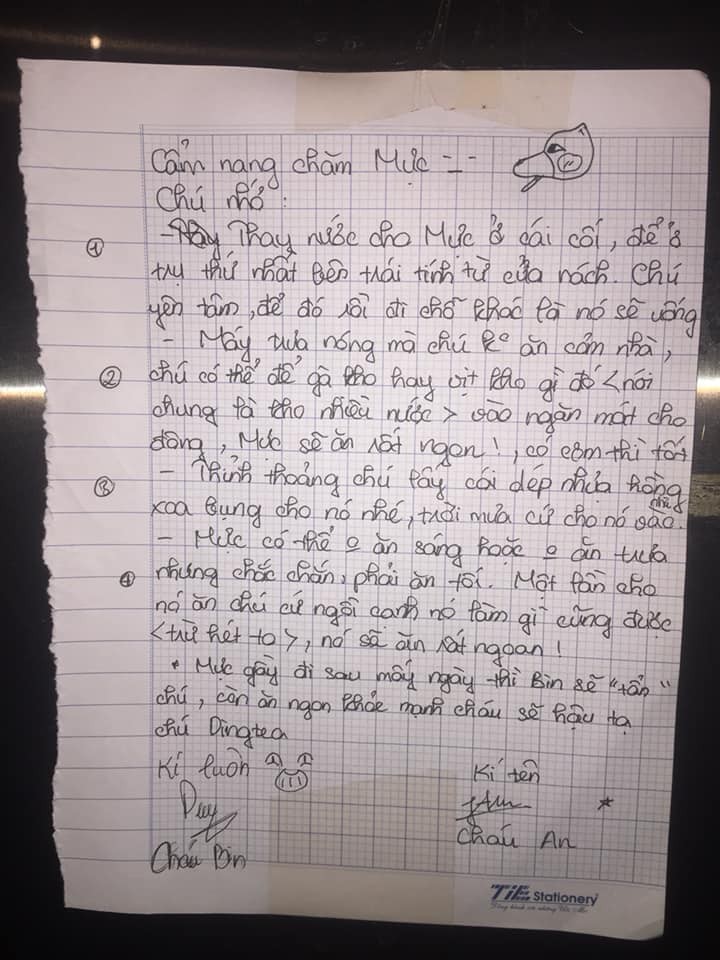 Cẩm nang chăm Mực -_-
Chú nhớ:
① - Thay nước cho Mực ở cái cối, để ở
trụ thứ nhất bên trái tính từ cửa nách. Chú
yên tâm, để đó rồi đi chỗ khác là nó sẽ uống
- Mấy trưa nóng mà chú k° ăn cơm nhà,
② chú có thể để gà kho hay vịt kho gì đó <nói
chung là kho nhiều nước> vào ngăn mát cho
đông, Mực sẽ ăn rất ngon!, có cơm thì tốt
③ - Thỉnh thoảng chú lấy cái dép nhựa hồng
xoa bụng cho nó nhé, trời mưa cứ cho nó vào nhà.
- Mực có thể o ăn sáng hoặc o ăn trưa
④ nhưng chắc chắn phải ăn tối. Một lần cho
nó ăn chú cứ ngồi canh nó làm gì cũng được
<trừ hét to>, nó sẽ ăn rất ngoan!
* Mực gầy đi sau mấy ngày thì Bin sẽ "tẩn"
chú, còn ăn ngon khỏe mạnh cháu sẽ hậu tạ
chú Dingtea
Kí luôn
Kí tên
Duy
Cháu Bin
Cháu An
TiE Stationery